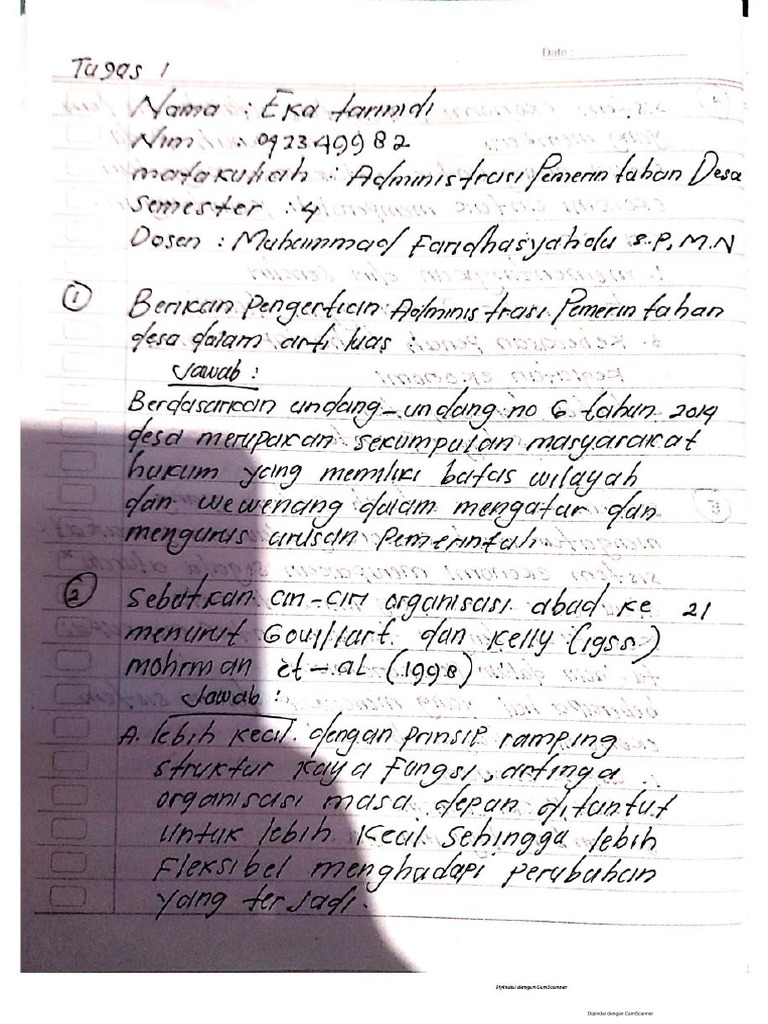 Date :
Tugas 1
Nama : Eka tarmidi
Nim : 042349982
matakuliah : Administrasi Pemerintahan Desa
Semester : 4
Dosen : Muhammad Faridhasyahdu S.P, M.N
1 Berikan Pengertian Administrasi Pemerintahan
desa dalam arti luas :
Jawab :
Berdasarkan undang-undang no 6 tahun 2014
desa merupakan sekumpulan masyarakat
hukum yang memliki batas wilayah
dan wewenang dalam mengatur dan
mengurus urusan Pemerintah
2 Sebutkan ciri-ciri organisasi abad ke 21
menurut Gouillart dan Kelly (1955)
mohrman et-al (1998)
Jawab :
A. lebih kecil dengan prinsip ramping
struktur kaya Fungsi, artinya
organisasi masa depan dituntut
untuk lebih kecil sehingga lebih
Fleksibel menghadapi Perubahan
yang terjadi.
Dipindai dengan CamScanner
Dipindai dengan CamScanner